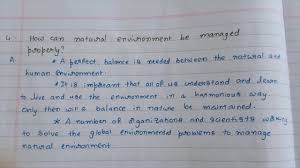 4. How can natural environment be managed
properly?
A. * A perfect balance is needed between the natural and
human environment.
* It is important that all of us understand and learn
to live and use the environment in a harmonious way.
Only then will balance in nature be maintained.
* A number of organizations and scientists working
to solve the global environmental problems to manage
natural environment